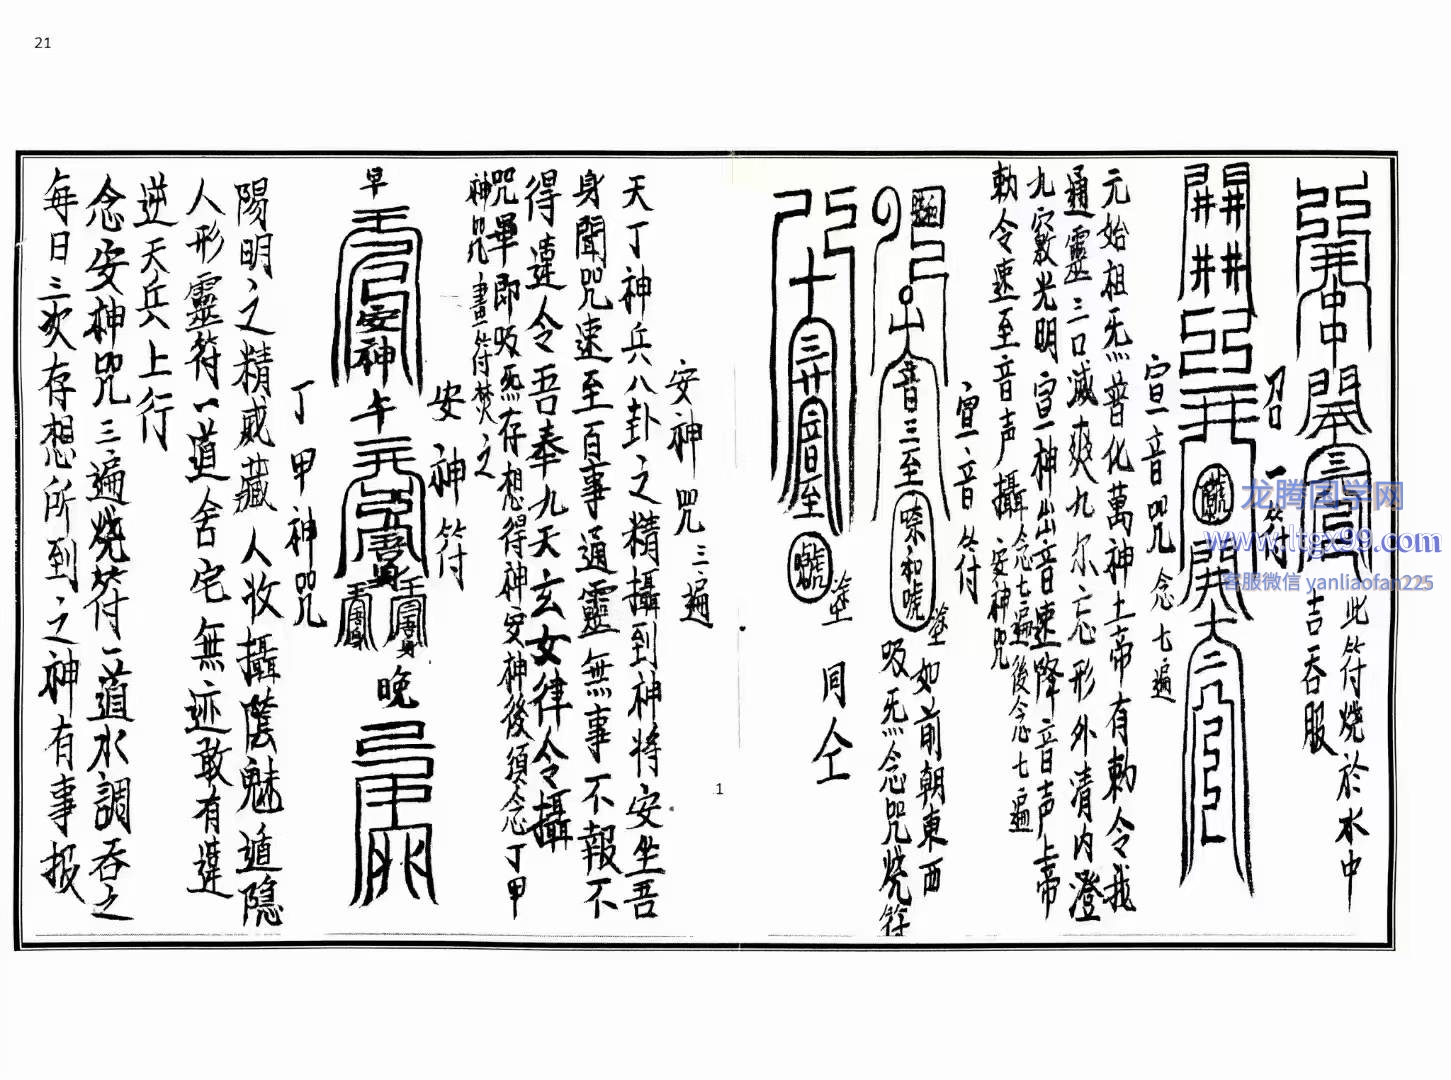 21
此符燒於水中
吉吞服
召一符
宣音咒 念七遍
元始祖炁普化萬神土帝有勅令我
通靈三口滅爽九尔忘形外清内澄
九竅光明宣神出音速降音声上帝
勅令速至音声攝
念七遍後念七遍
安神咒
宣音符
塗 如前朝東西
吸炁念咒燒符
塗 同仝
安神咒三遍
天丁神兵八卦之精攝到神將安坐吾
身聞咒速至百事通靈無事不報不
得違令吾奉九天玄女律令攝
咒畢即吸炁存想得神安神後須念丁甲
神咒畫符焚之
安神符
早
安神
午
晚
丁甲神咒
陽明之精威藏人收攝陰魅遁隐
人形靈符一道舍宅無迹敢有違
逆天兵上行
念安神咒三遍燒符一道水調吞之
每日三次存想所到之神有事报
1
龙腾国学网
www.ltgx99.com
客服微信 yanliaofan225